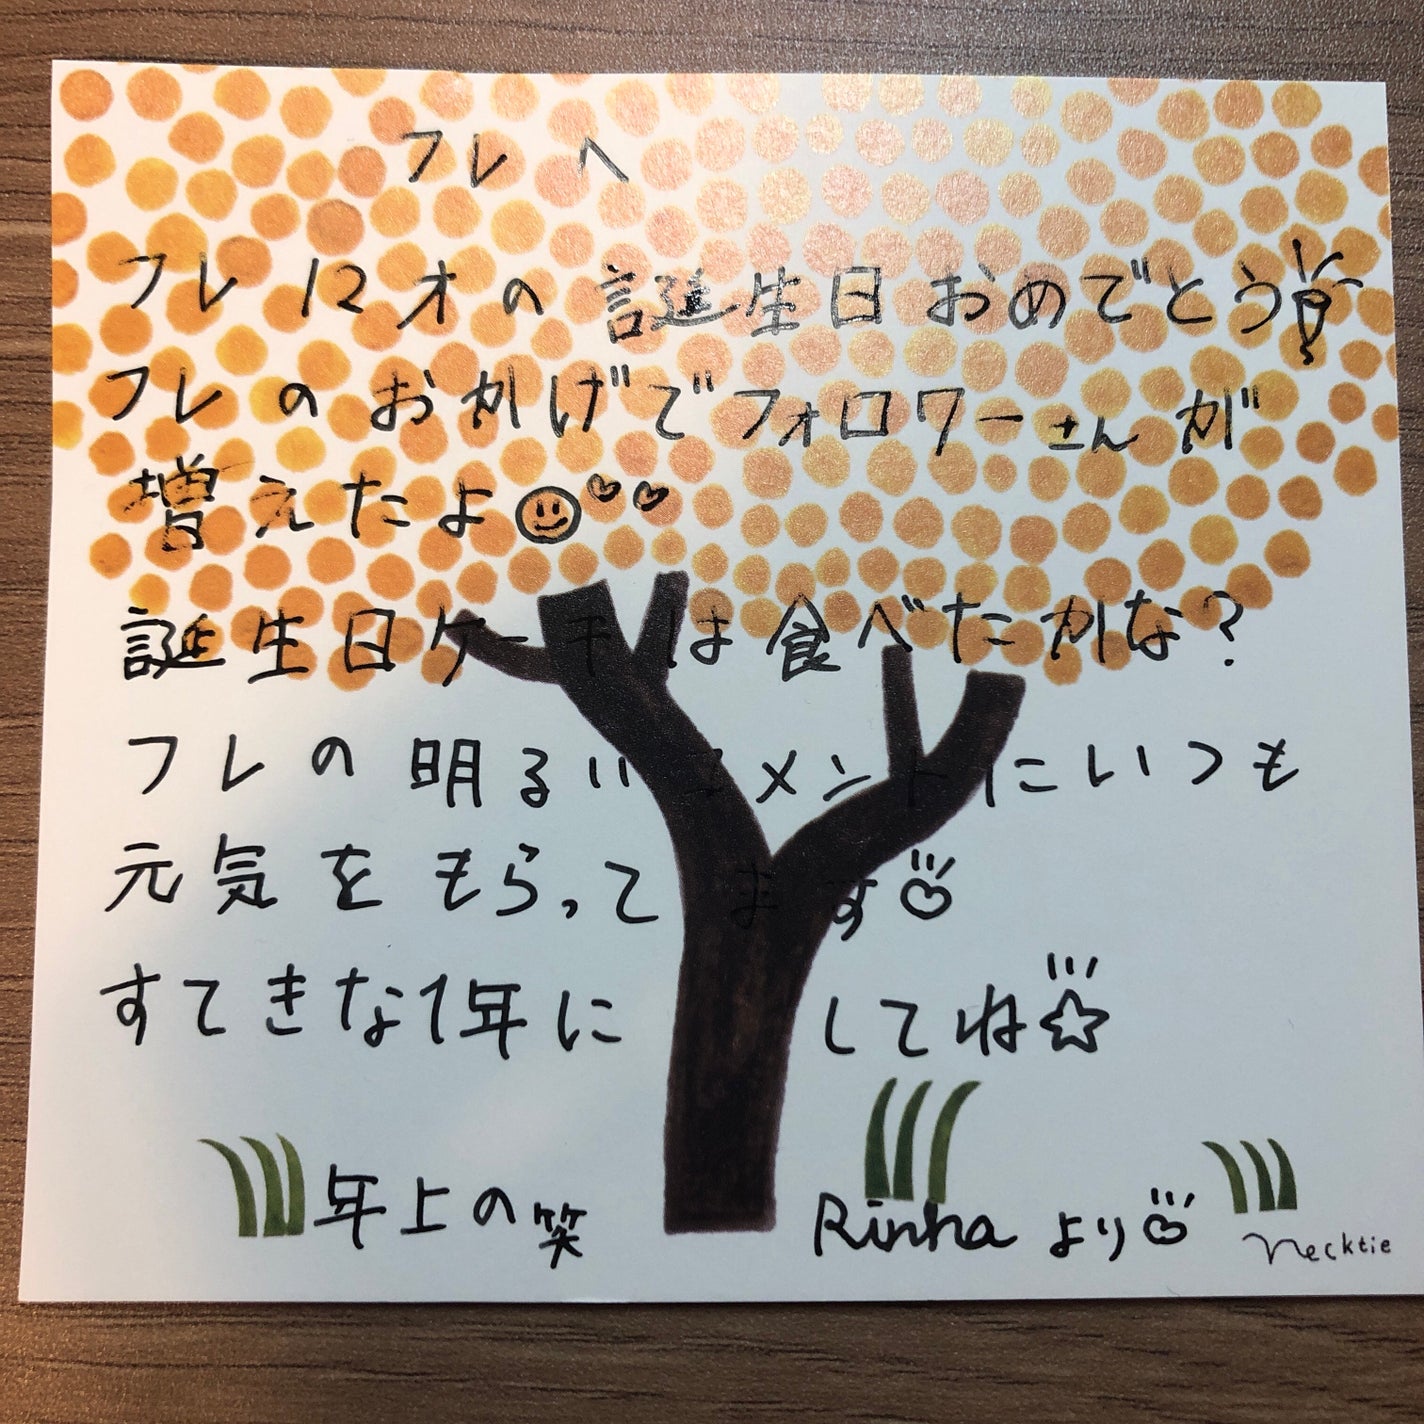 フレへ
フレ12才の誕生日おめでとう!
フレのおかげでフォロワーさんが
増えたよ
誕生日ケーキは食べたかな?
フレの明るいコメントにいつも
元気をもらってます
すてきな1年にしてね☆
年上の笑 Rinha より
Necktie